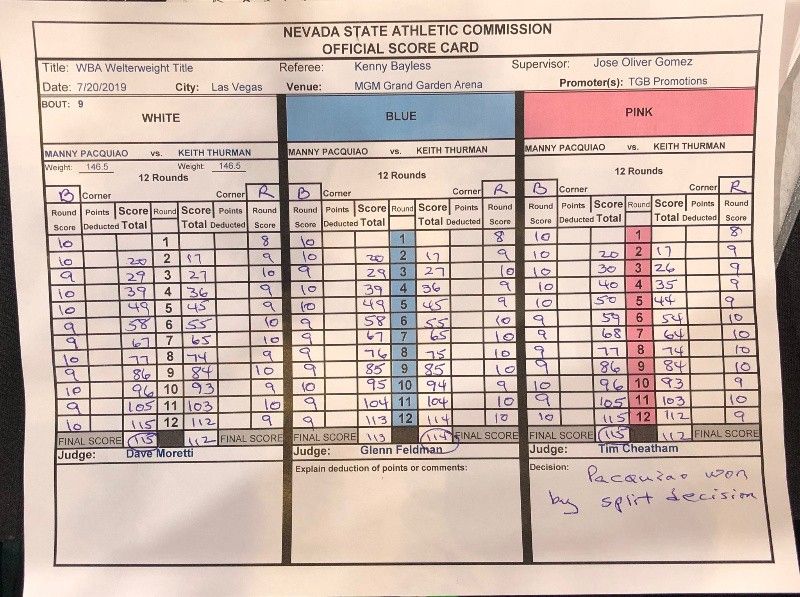 NEVADA STATE ATHLETIC COMMISSION
OFFICIAL SCORE CARD
Title: WBA Welterweight Title Referee: Kenny Bayless Supervisor: Jose Oliver Gomez
Date: 7/20/2019 City: Las Vegas Venue: MGM Grand Garden Arena Promoter(s): TGB Promotions
BOUT: 9
WHITE BLUE PINK
MANNY PACQUIAO vs. KEITH THURMAN MANNY PACQUIAO vs. KEITH THURMAN MANNY PACQUIAO vs. KEITH THURMAN
Weight: 146.5 Weight: 146.5
12 Rounds 12 Rounds 12 Rounds
B Corner Corner R B Corner Corner R B Corner Corner R
Round Points Score Round Score Points Round Round Points Score Round Score Points Round Round Points Score Round Score Points Round
Score Deducted Total Total Deducted Score Score Deducted Total Total Deducted Score Score Deducted Total Total Deducted Score
10 1 8 10 1 8 10 1 8
10 20 2 17 9 10 20 2 17 9 10 20 2 17 9
9 29 3 27 10 9 29 3 27 10 10 30 3 26 9
10 39 4 36 9 10 39 4 36 9 10 40 4 35 9
10 49 5 45 9 10 49 5 45 9 10 50 5 44 9
9 58 6 55 10 9 58 6 55 10 9 59 6 54 10
9 67 7 65 10 9 67 7 65 10 9 68 7 64 10
10 77 8 74 9 9 76 8 75 10 9 77 8 74 10
9 86 9 84 10 9 85 9 85 10 9 86 9 84 10
10 96 10 93 9 10 95 10 94 9 10 96 10 93 9
9 105 11 103 10 9 104 11 104 10 9 105 11 103 10
10 115 12 112 9 9 113 12 114 10 10 115 12 112 9
FINAL SCORE 115 112 FINAL SCORE FINAL SCORE 113 114 FINAL SCORE FINAL SCORE 115 112 FINAL SCORE
Judge: Dave Moretti Judge: Glenn Feldman Judge: Tim Cheatham
Explain deduction of points or comments: Decision: Pacquiao won
by split decision